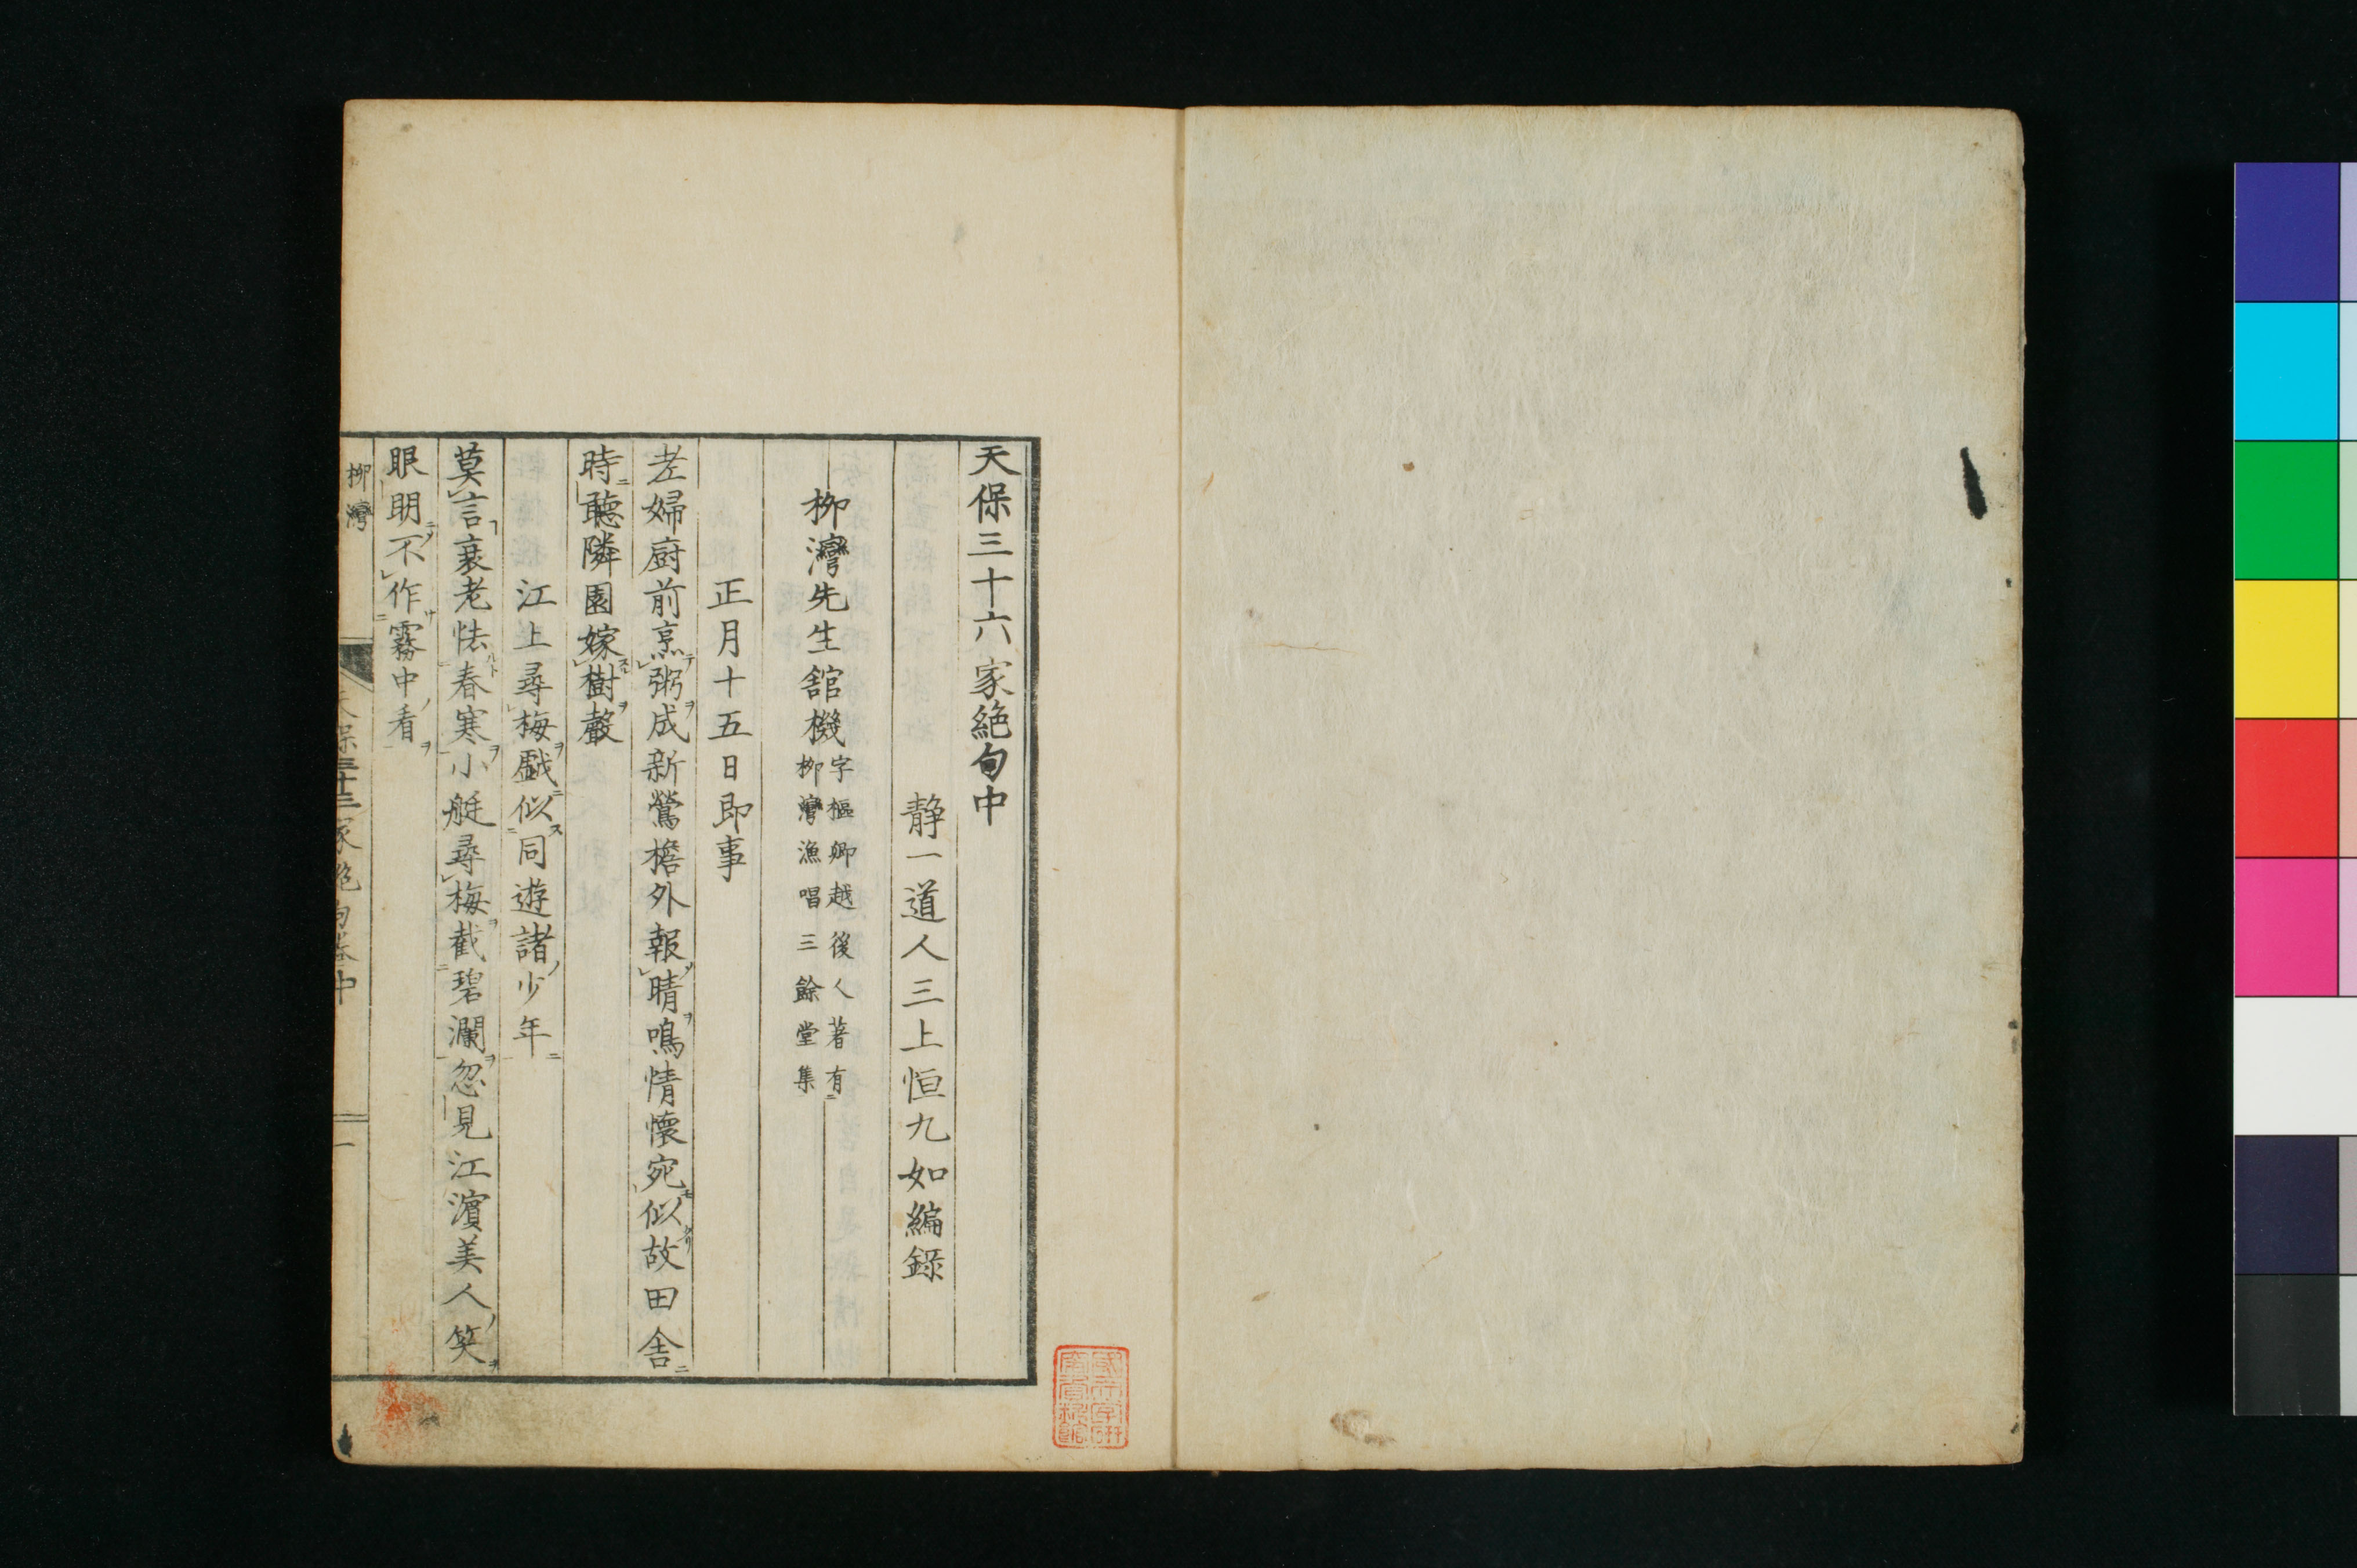 天保三十六家絶句中
静一道人三上恒九如編錄
柳灣先生舘機
字樞卿越後人著有
柳灣漁唱三餘堂集
正月十五日即事
老婦厨前烹粥成新鶯檐外報晴鳴情懷宛似故田舎
時聽隣園嫁樹聲
江上尋梅戲似同遊諸少年
莫言衰老怯春寒小艇尋梅截碧瀾忽見江濵美人笑
眼明不作霧中看
柳灣
天保三十三家絶句卷中
一